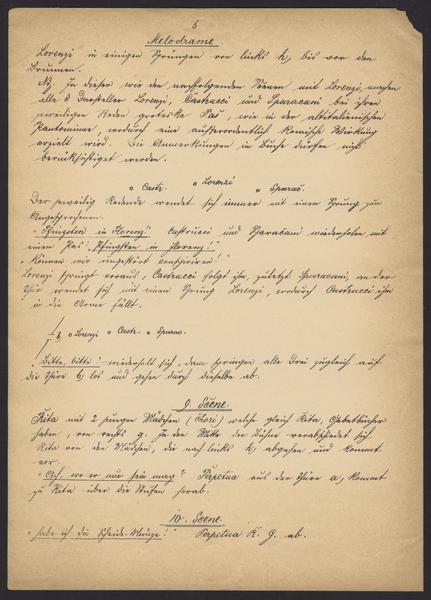 6
Melodrame.
Lorenzi in einigen Sprüngen von links h, bis vor den
Brunnen.
NB. In dieser wie den nachfolgenden Scenen mit Lorenzi, machen
alle 3 Darsteller Lorenzi, Castrucci und Sparacani bei ihren
jeweiligen Reden groteske Pas, wie in der altitalienischen
Pantomime, wodurch eine außerordentlich komische Wirkung
erzielt wird. Die Anmerkungen im Buche dürfen nicht
berücksichtigt werden.
o Castr. o Lorenzi o Sparac.
Der jeweilig Redende wendet sich immer mit einem Sprung zum
Angesprochenen.
"Pfingsten in Florenz!" Castrucci und Sparacani wiederholen mit
einem Pas: "Pfingsten in Florenz!"
"Können wir ungestört conspiriren!"
Lorenzi springt voraus, Castrucci folgt ihm, zuletzt Sparacani, an der
Thür wendet sich mit einem Sprung Lorenzi, wodurch Castrucci ihm
in die Arme fällt.
b, o Lorenzi o Castr. o Sparac.
"Bitte, bitte" wiederholt sich, dann springen alle Drei zugleich auf
die Thüre b, los und gehen durch dieselbe ab.
9. Scene.
Rita mit 2 jungen Mädchen (Chor) welche gleich Rita, Gebetbücher
haben, von rechts g. In der Mitte der Bühne verabschiedet sich
Rita von den Mädchen, die nach links h, abgehen und kommt
vor.
"Ach, wo er nur sein mag" Perpetua aus der Thüre a, kommt
zu Rita über die Stufen herab.
10. Scene.
"habe ich die Scheide-Münze!" Perpetua R. G. ab.